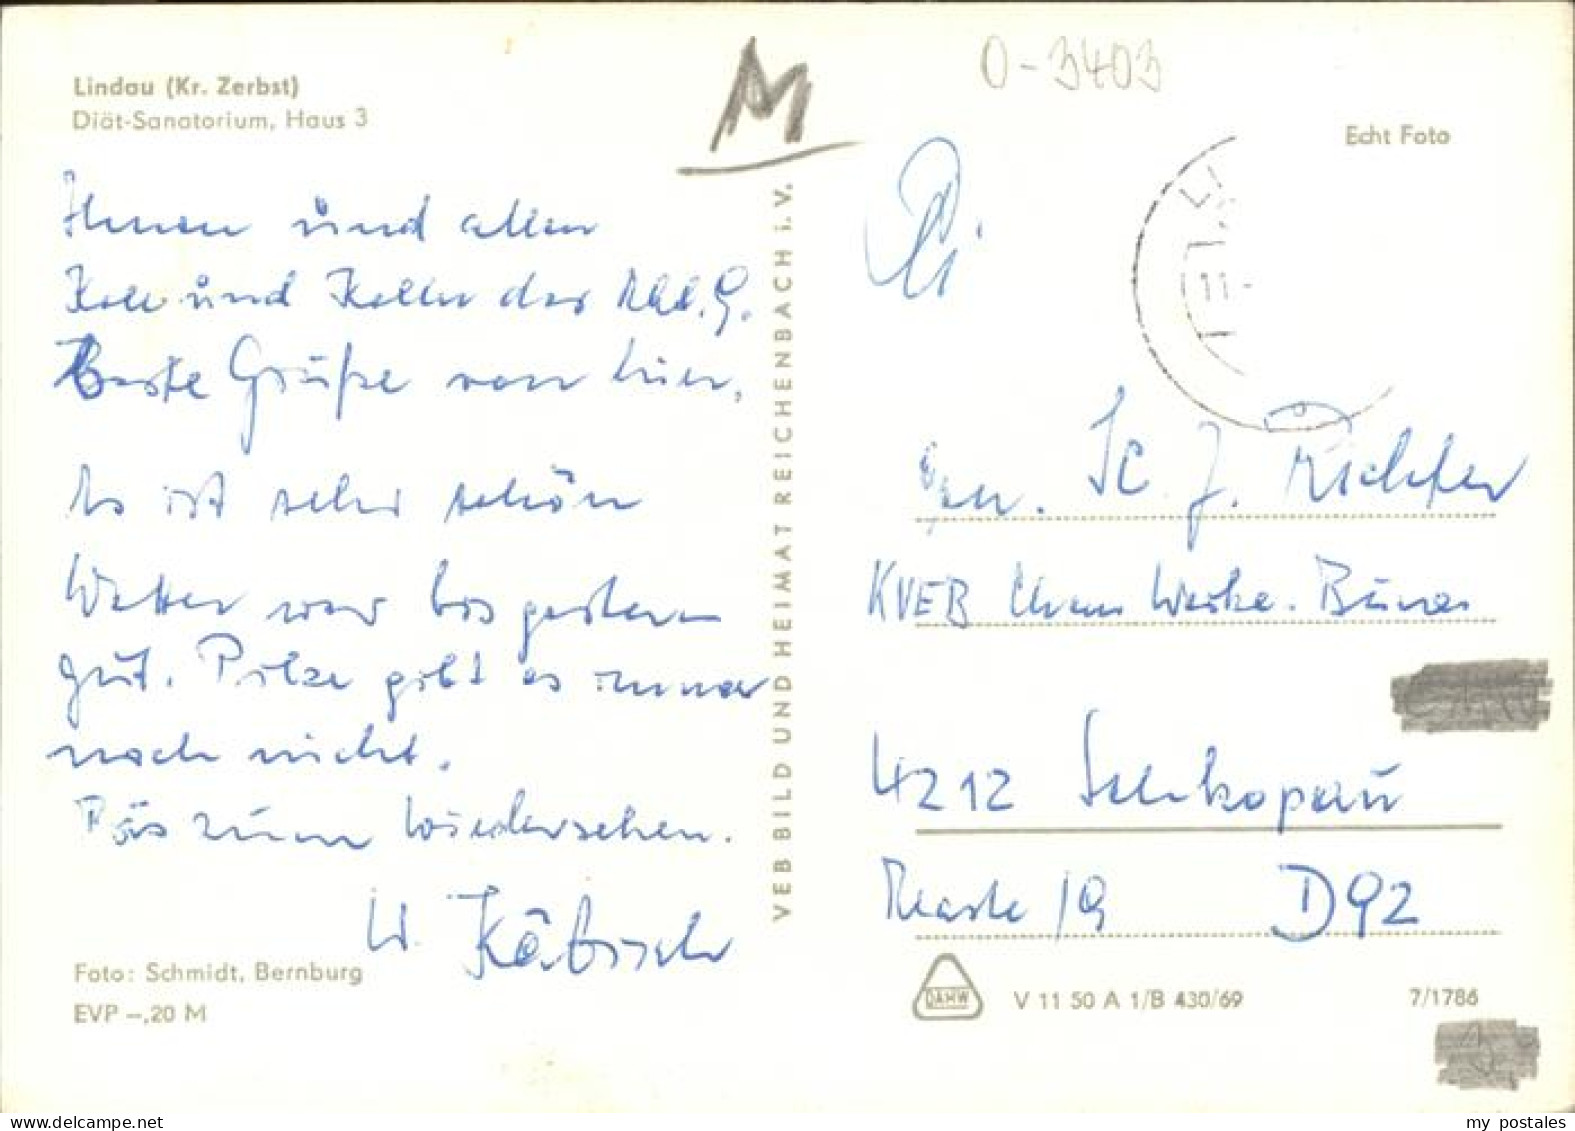 Lindau (Kr. Zerbst)
Diät-Sanatorium, Haus 3
M
0-3403
Echt Foto
Ihnen und allen
und der
Beste Grüße von hier,
Es ist sehr schön
Wetter war bis gestern
gut. Pilze gibt es immer
noch nicht.
Bis zum Wiedersehen.
W. Käbisch
VEB BILD UND HEIMAT REICHENBACH i. V.
11-
J. Richter
KVEB Chem Werke. Buna
4212 Schkopau
D92
Foto: Schmidt, Bernburg
EVP -,20 M
DAHW
V 11 50 A 1/B 430/69
7/1786
delcampe.net
my_postales